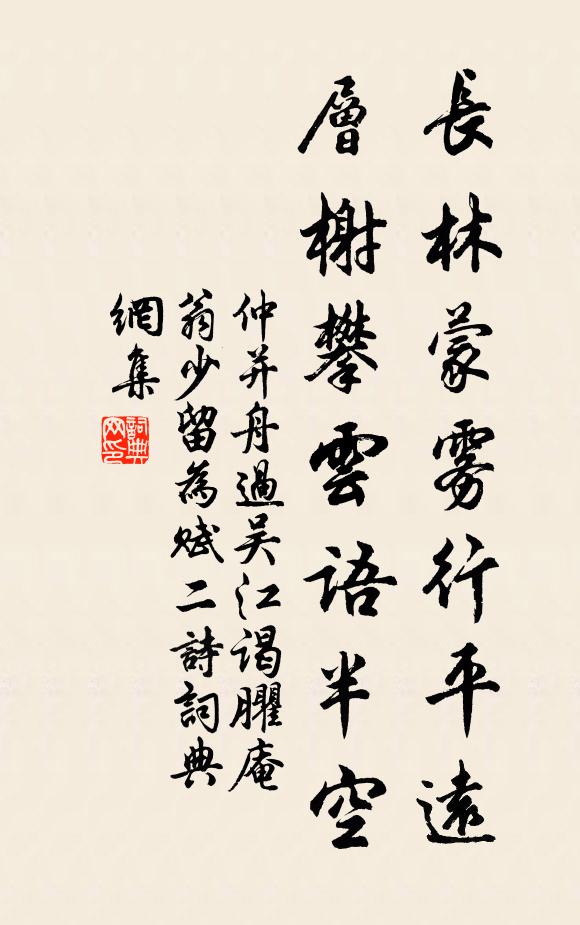 長林蒙霧行平遠
層榭攀雲語半空
仲并舟過吴江謁臞庵
翁少留為賦二詩詞典
網集
詞典
网印